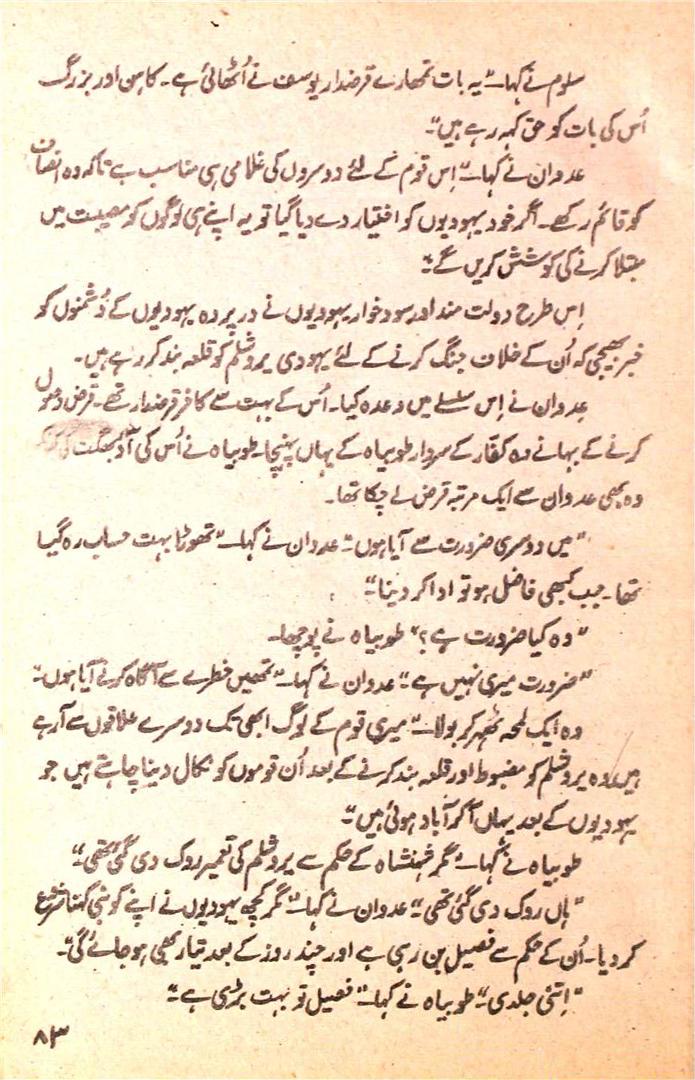 سلوم نے کہا۔ "یہ بات تمھارے قرضدار یوسف نے اُٹھائی ہے۔ کاہن اور بزرگ
اُس کی بات کو حق کہہ رہے ہیں"۔
عدوان نے کہا۔ "اِس قوم کے لئے دوسروں کی غلامی ہی مناسب ہے تاکہ وہ انصاف
کو قائم رکھے۔ اگر خود یہودیوں کو اختیار دے دیا گیا تو یہ اپنے ہی لوگوں کو مصیبت میں
مبتلا کرنے کی کوشش کریں گے"۔
اِس طرح دولت مند اور سود خوار یہودیوں نے درپردہ یہودیوں کے دُشمنوں کو
خبر بھیجی کہ اُن کے خلاف جنگ کرنے کے لئے یہودی یروشلم کو قلعہ بند کر رہے ہیں۔
عدوان نے اِس سلسلے میں وعدہ کیا۔ اُس کے بہت سے کافر قرضدار تھے۔ قرض وصول
کرنے کے بہانے وہ کفّار کے سردار طوبیاہ کے یہاں پہنچا۔ طوبیاہ نے اُس کی آؤ بھگت کی
وہ بھی عدوان سے ایک مرتبہ قرض لے چکا تھا۔
"میں دوسری ضرورت سے آیا ہوں"۔ عدوان نے کہا۔ "تھوڑا بہت حساب رہ گیا
تھا۔ جب کبھی فاضل ہو تو ادا کر دینا"۔
"وہ کیا ضرورت ہے؟" طوبیاہ نے پوچھا۔
"ضرورت میری نہیں ہے"۔ عدوان نے کہا۔ "تمھیں خطرے سے آگاہ کرنے آیا ہوں"۔
وہ ایک لمحہ ٹھہر کر بولا۔ "میری قوم کے لوگ ابھی تک دوسرے علاقوں سے آرہے
ہیں۔ وہ یروشلم کو مضبوط اور قلعہ بند کرنے کے بعد اُن قوموں کو نکال دینا چاہتے ہیں جو
یہودیوں کے بعد یہاں آکر آباد ہوئی ہیں"۔
طوبیاہ نے کہا۔ "مگر شہنشاہ کے حکم سے یروشلم کی تعمیر روک دی گئی تھی"۔
"ہاں روک دی گئی تھی"۔ عدوان نے کہا۔ "مگر کچھ یہودیوں نے اپنے کو نبی کہنا شروع
کر دیا۔ اُن کے حکم سے فصیل بن رہی ہے اور چند روز کے بعد تیار بھی ہو جائے گی"۔
"اِتنی جلدی"۔ طوبیاہ نے کہا۔ "فصیل تو بہت بڑی ہے"۔
۸۳